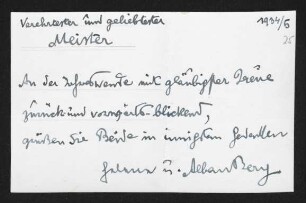 Verehrtester und geliebtester
Meister
1934/5
25
An der Jahreswende mit gläubigster Treue
zurück und vorwärts-blickend,
grüßen Sie Beide in innigstem Gedenken
Helene u. Alban Berg